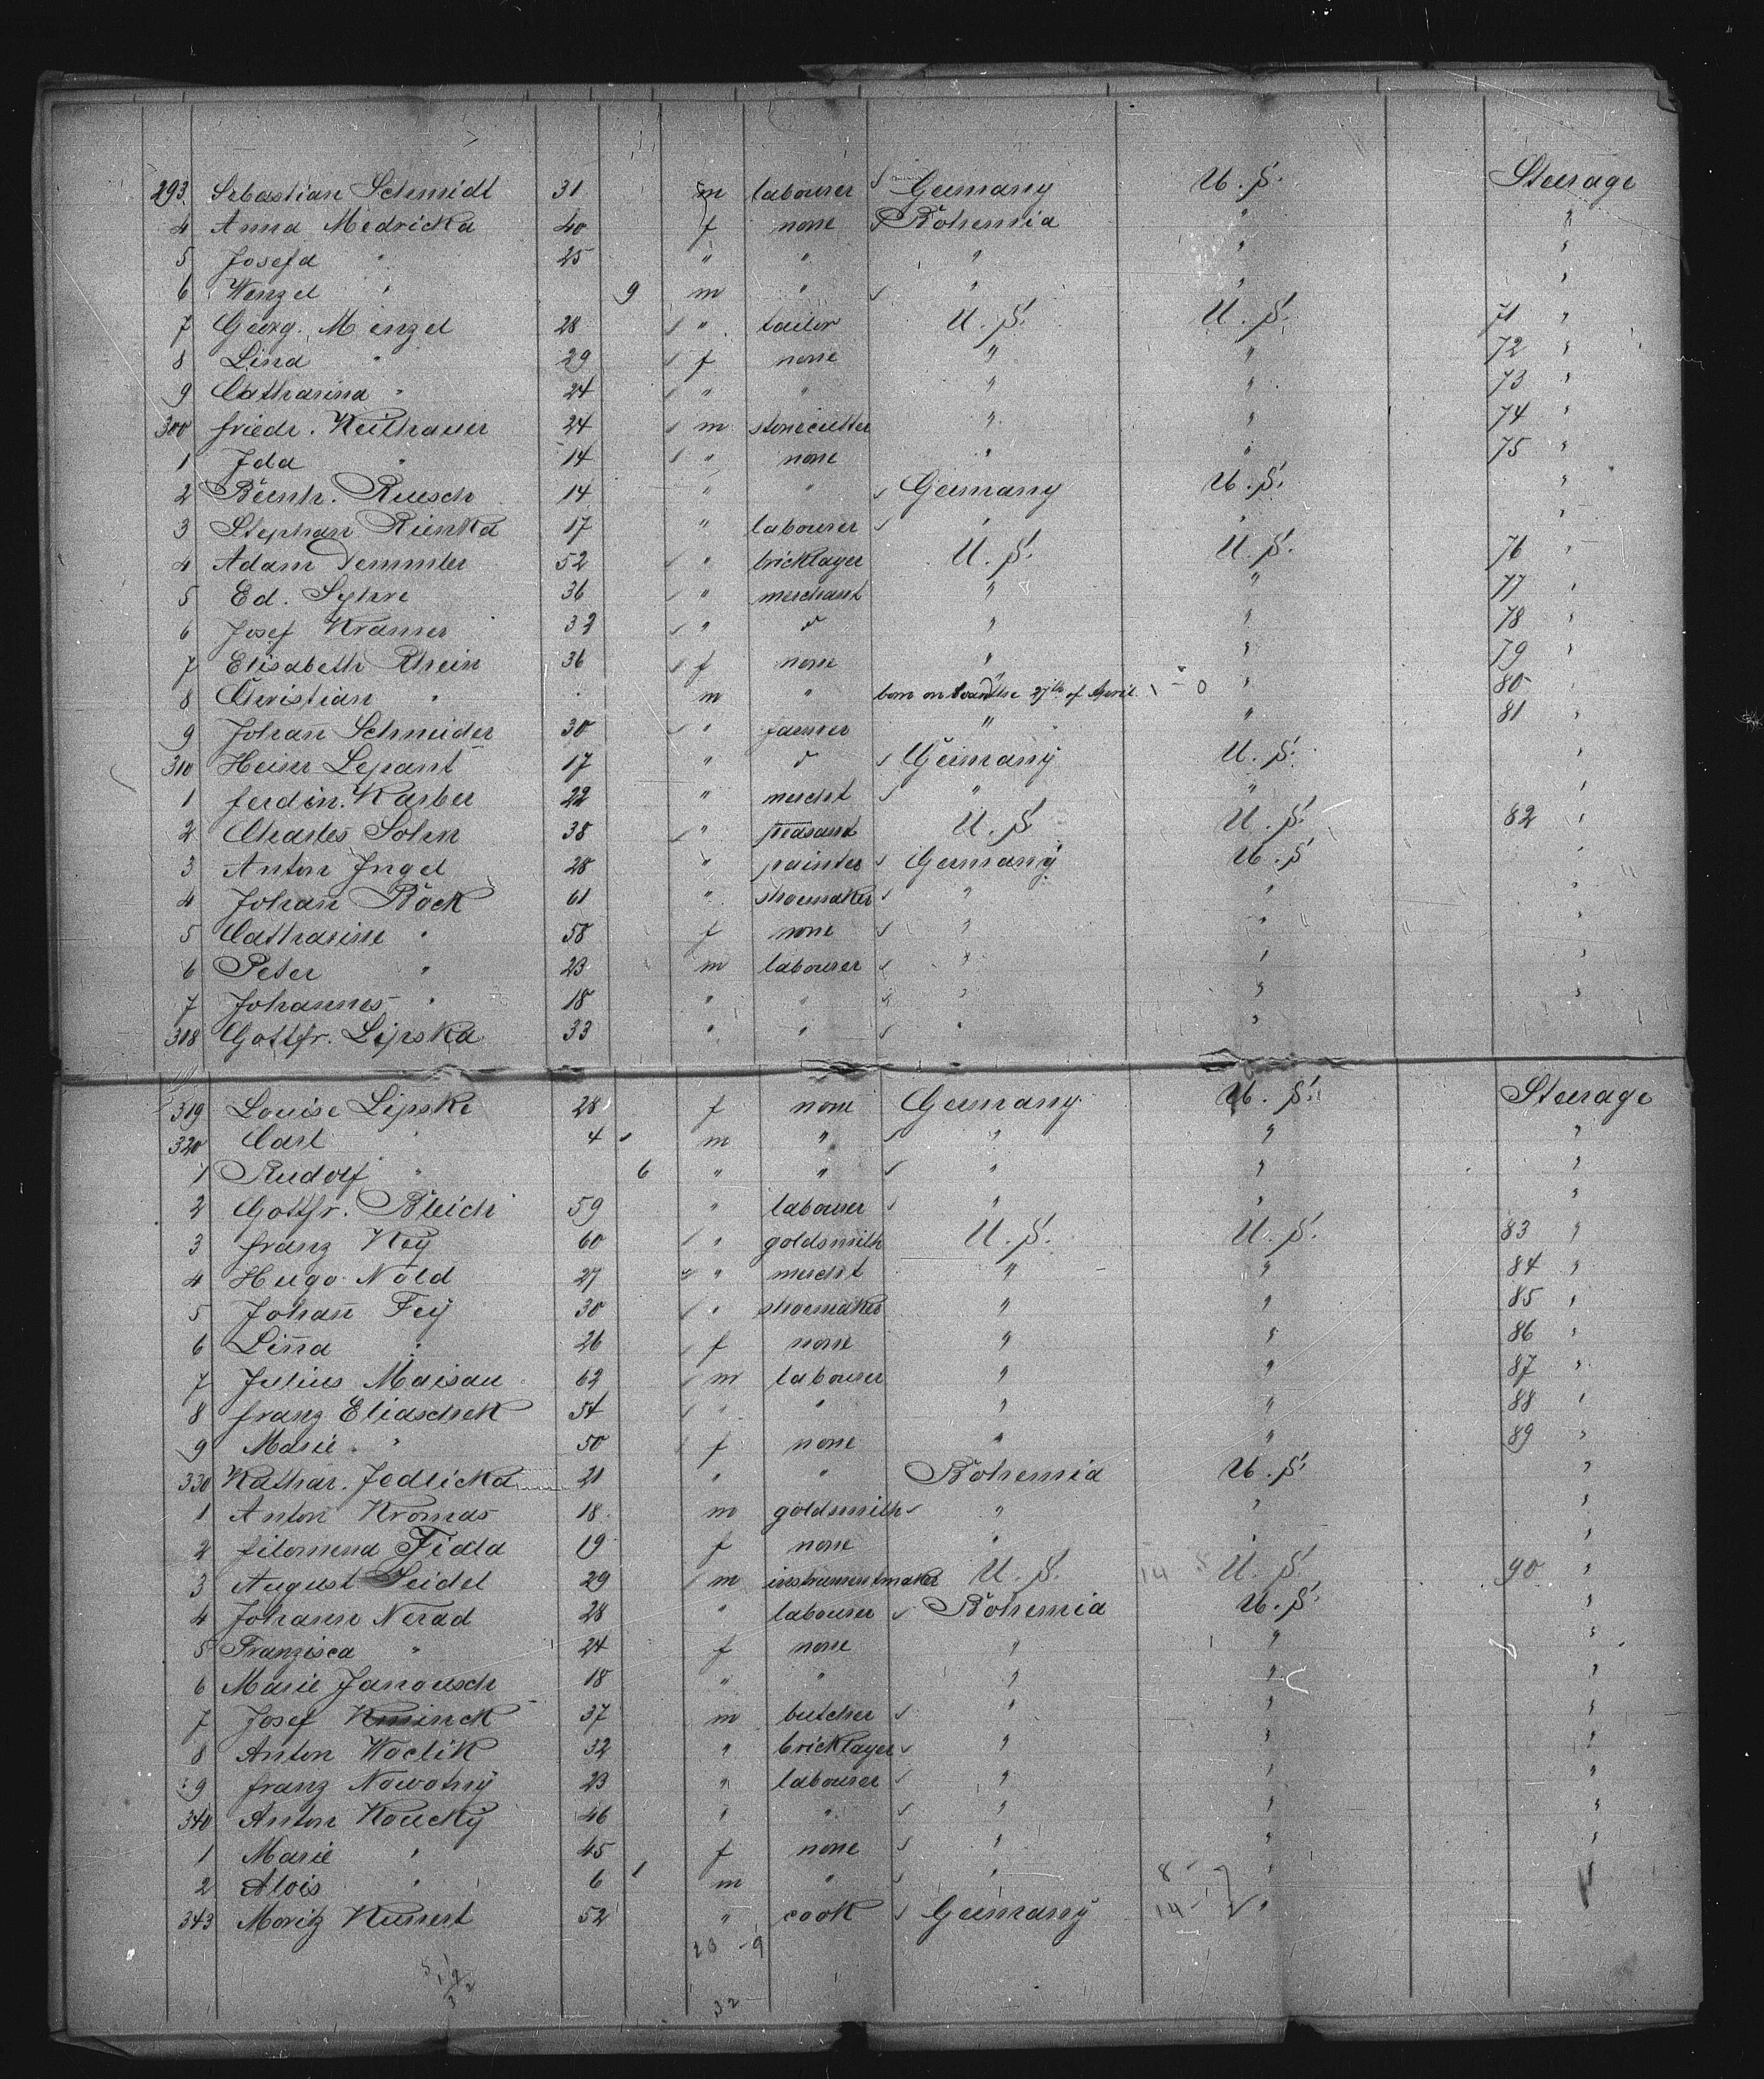 293. Sebastian Schmidt 31 m labourer Germany U. S. Steerage
4 Anna Medricka 40 f none Bohemia " "
5 Josefa " 25 " " " " "
6 Wenzel " 9 m " " " "
7 Georg. Menzel 28 " tailor U. S. U. S. 71 "
8 Lina " 29 f none " " 72 "
9 Catharina " 24 " " " " 73 "
300 Friedr. Keithauer 24 m stonecutter " " 74 "
1 Ida " 14 " none " " 75 "
2 Bernh. Reusch 14 " " Germany U. S. "
3 Stephan Rienka 17 " labourer " " "
4 Adam Demmler 52 " bricklayer U. S. U. S. 76 "
5 Ed. Sylvre 36 " merchant " " 77 "
6 Josef Kramer 32 " " " 78 "
7 Elisabeth Rhein 36 f none " " 79 "
8 Christian " m " born on board the 27th of April - 0 " 80 "
9 Johan̄ Schneider 30 " farmer " " 81 "
310 Heinr Lepant 17 " Germany U. S. "
1 Ferdin. Karber 22 " mercht " " "
2 Charles Sohn 38 " peasant U. S. U. S. 82 "
3 Anton Ingel 28 " painter Germany U. S "
4 Johan̄ Böck 61 " shoemaker " " "
5 Catharine " 58 f none " " "
6 Peter " 23 m labourer " " "
7 Johannes " 18 " " " " "
318 Gottfr. Lipska 33 " " " "
319 Louise Lipske 28 f none Germany U. S. Steerage
320 Carl " 4 m " " " "
1 Rudolf " 6 " " " " "
2 Gottfr. Bleich 59 " labourer " " "
3 Franz Key 60 " goldsmith U. S. U. S. 83 "
4 Hugo Nöld 27 " mercht " " 84 "
5 Johan̄ Fey 30 " shoemaker " " 85 "
6 Lin̄a " 26 f none " " 86 "
7 Julius Maisau 62 m labourer " " 87 "
8 Franz Eliaschek 54 " " " " 88 "
9 Marie " 50 f none " " 89 "
330 Kathar. Jedlicka 21 " " Bohemia U. S. "
1 Anton Kromas 18 m goldsmith " " "
2 Filomena Fiala 19 f none " " "
3 August Seidel 29 m instrumentmaker U. S. 14 U. S. 90 "
4 Johann Nerad 28 " labourer Bohemia U. S. "
5 Franzisca " 24 f none " " "
6 Marie Janousch 18 " " " " "
7 Josef 37 m butcher " " "
8 Anton Woclik 32 " bricklayer " " "
9 Franz Nowotny 23 " labourer " " "
340 Anton Koucky 46 " " " " "
1 Marie " 45 f none " " "
2 Alois " 6 m " " 8 "
343 Moritz Kunert 52 " cook Germany 14 "
32